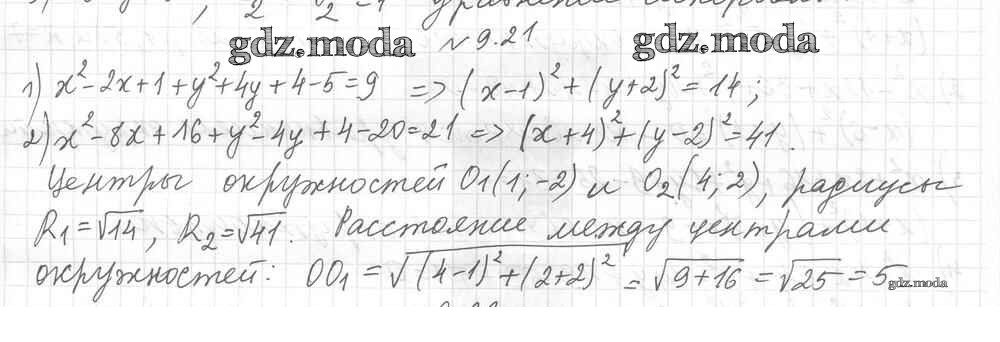 gdz.moda
№ 9.21
gdz.moda
1) x² - 2x + 1 + y² + 4y + 4 - 5 = 9 => (x-1)² + (y+2)² = 14;
2) x² - 8x + 16 + y² - 4y + 4 - 20 = 21 => (x+4)² + (y-2)² = 41.
Центры окружностей O1(1; -2) и O2(4; 2), радиусы
R₁ = √14, R₂ = √41. Расстояние между центрами
окружностей: OO₁ = √((4-1)² + (2+2)²) = √(9+16) = √25 = 5
gdz.moda